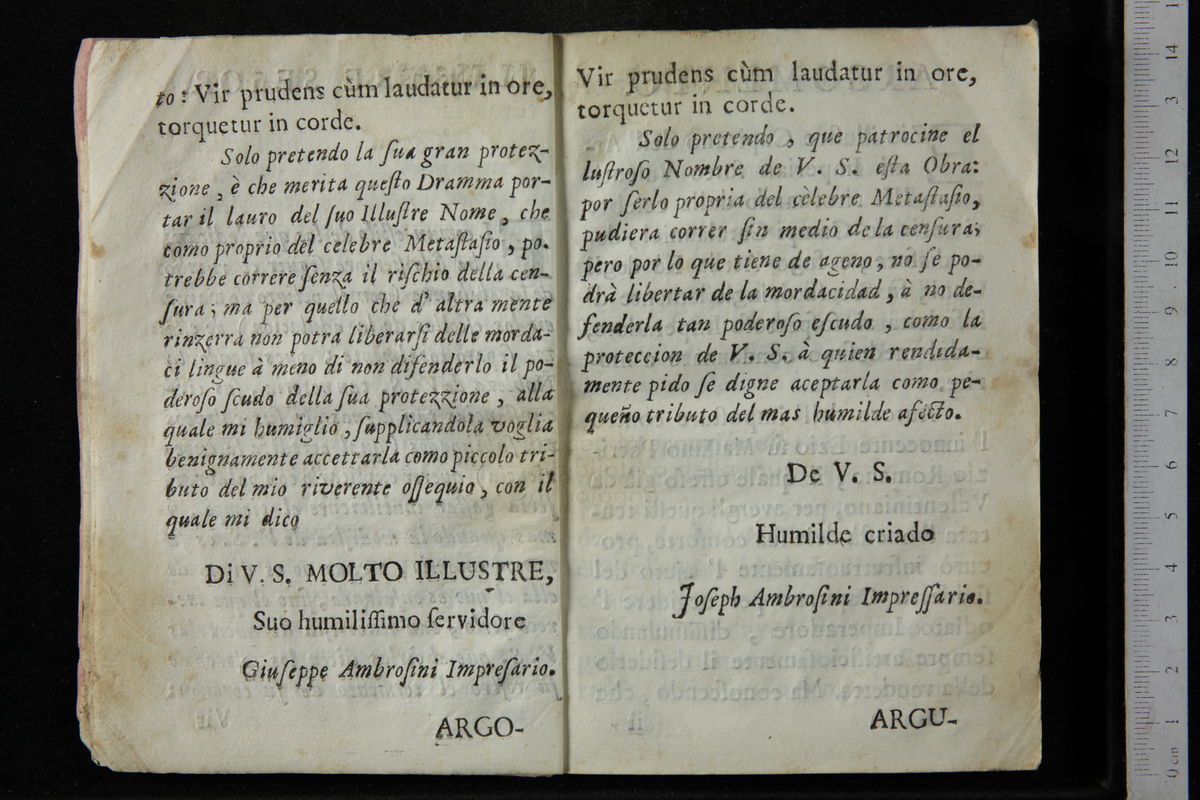 to: Vir prudens cùm laudatur in ore,
torquetur in corde.
Solo pretendo la ſua gran protez-
zione, è che merita queſto Dramma por-
tar il lauro del ſuo Illuſtre Nome, che
como proprio del celebre Metaſtaſio, po.
trebbe correre ſenza il riſchio della cen-
ſura; ma per quello che d' altra mente
rinzerra non potra liberarſi delle morda-
ci lingue à meno di non difenderlo il po-
deroſo ſcudo della ſua protezzione, alla
quale mi humiglio, ſupplicandola voglia
benignamente accettarla como piccolo tri-
buto del mio riverente oſſequio, con il
quale mi dico
Di V. S. MOLTO ILLUSTRE,
Suo humiliſſimo ſervidore
Giuſeppe Ambroſini Impreſario.
ARGO-
Vir prudens cùm laudatur in ore,
torquetur in corde.
Solo pretendo, que patrocine el
luſtroſo Nombre de V. S. eſta Obra:
por ſerlo propria del cèlebre Metaſtaſio,
pudiera correr ſin medio de la cenſura;
pero por lo que tiene de ageno, no ſe po-
drà libertar de la mordacidad, à no de-
fenderla tan poderoſo eſcudo, como la
proteccion de V. S. à quien rendida-
mente pido ſe digne aceptarla como pe-
queño tributo del mas humilde afecto.
De V. S.
Humilde criado
Joſeph Ambroſini Impreſſario.
ARGU-